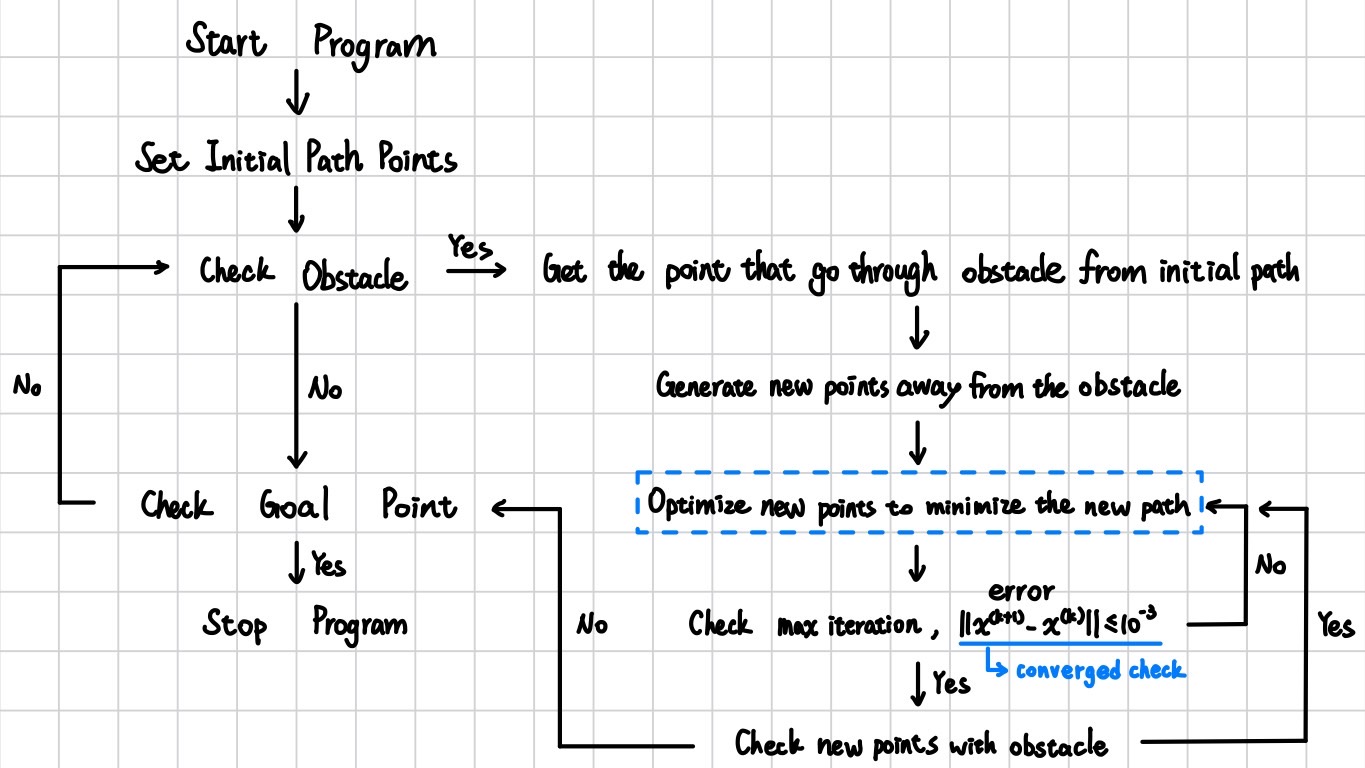 Start Program
Set Initial Path Points
Yes
Check Obstacle
Get the point that go through obstacle from initial path
No
No
Generate new points away from the obstacle
Check Goal Point
Optimize new points to minimize the new path
Yes
No
error
Stop Program
No
Check max iteration, ||x^(k+1) - x^(k)|| ≤ 10^-3
Yes
converged check
Yes
Check new points with obstacle